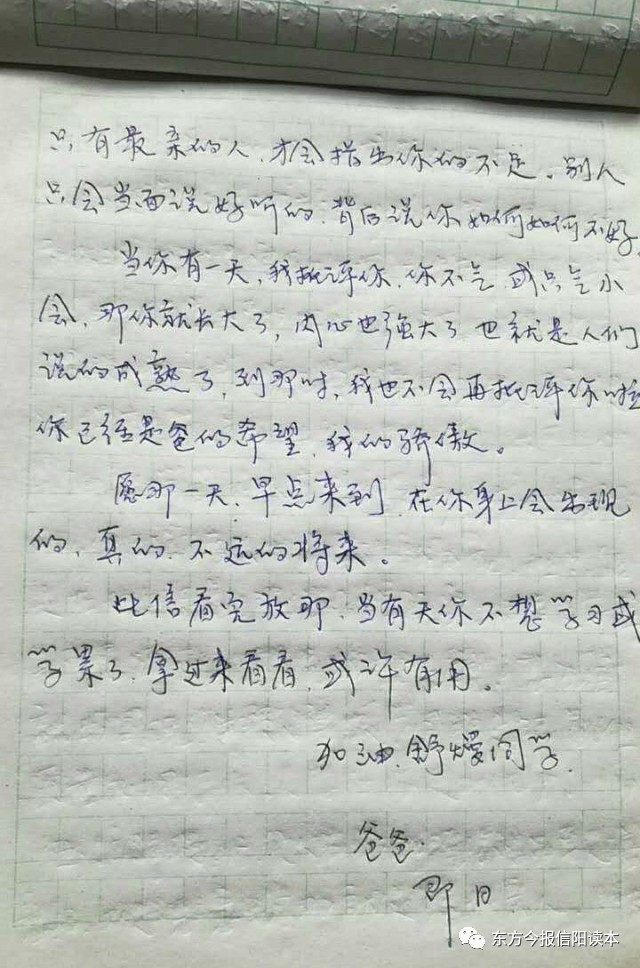 只有最亲的人,才会指出你的不足。别人
只会当面说好听的,背后说你如何如何不好,
当你有一天,我批评你,你不气或只气小
会,那你就长大了,内心也强大了也就是人们
说的成熟了,到那时,我也不会再批评你啦
你已经是爸的希望,我的骄傲。
愿那一天,早点来到,在你身上会出现
的,真的,不远的将来。
此信看完放那,当有天你不想学习或
学累了,拿过来看看,或许有用。
加油,舒 同学,
爸爸.
即日
东方今报信阳读本